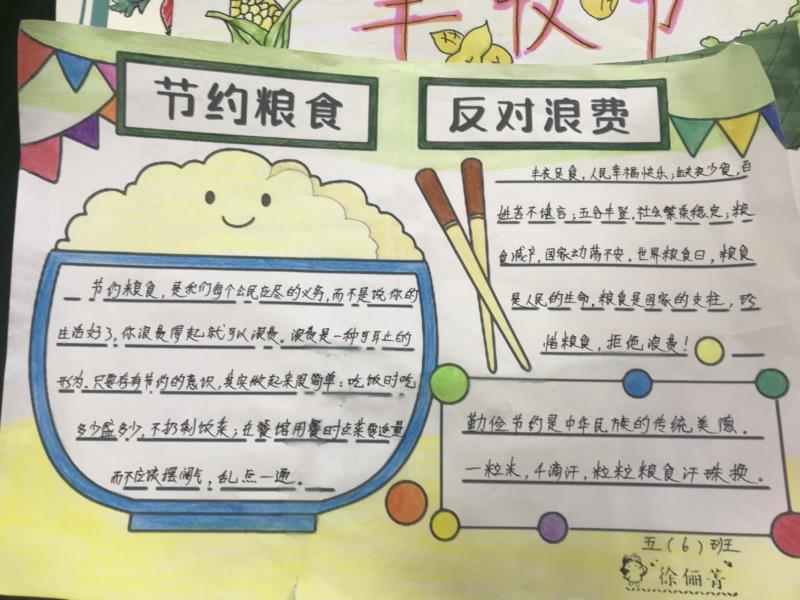 丰收节
节约粮食
反对浪费
节约粮食，是我们每个公民应尽的义务，而不是说你的
生活好了，你浪费得起就可以浪费。浪费是一种可耻的
形为。只要存有节约的意识，其实做起来很简单：吃饭时吃
多少盛多少，不扔剩饭菜；在餐馆用餐时点菜要适量
而不应该摆阔气，乱点一通。
丰衣足食，人民幸福快乐；缺衣少食，百
姓苦不堪言；五谷丰登，社会繁荣稳定；粮
食减产，国家动荡不安。世界粮食日，粮食
是人民的生命，粮食是国家的支柱，珍
惜粮食，拒绝浪费！
勤俭节约是中华民族的传统美德。
一粒米，千滴汗，粒粒粮食汗珠换。
五（6）班
徐俪菁